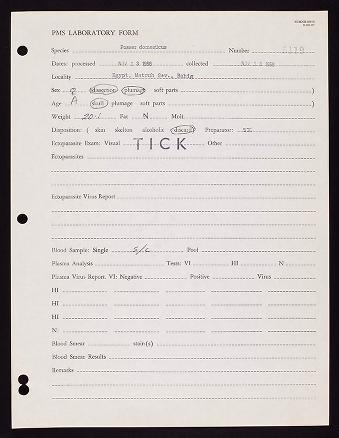 PMS LABORATORY FORM
Species Passer domesticus Number
Dates: processed NOV 1 3 1966 collected NOV 1 3 1966
Locality Egypt, Matruh Gov., Bahig
Sex ♀ (dissection plumage soft parts )
Age A (skull plumage soft parts )
Weight 20.1 Fat N Molt
Disposition: ( skin skelton alcoholic discard) Preparator:
Ectoparasite Exam: Visual TICK Other
Ectoparasites
Ectoparasite Virus Report
Blood Sample: Single S/C Pool
Plasma Analysis Tests: VI HI N
Plasma Virus Report. VI: Negative Positive Virus
HI
HI
HI
N:
Blood Smear stain(s)
Blood Smear Results
Remarks